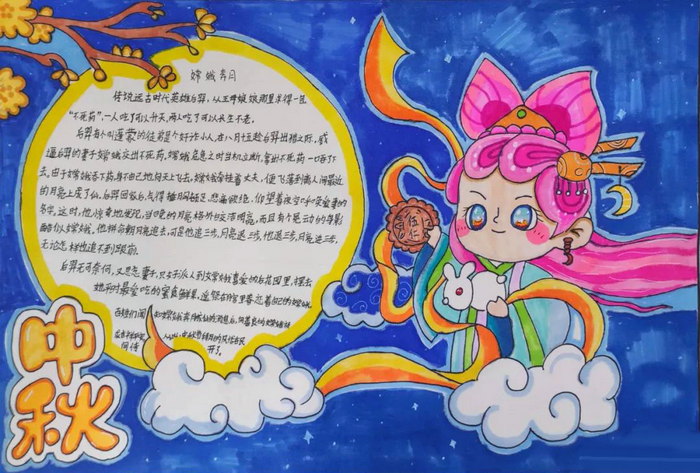 嫦娥奔月
传说远古时代英雄后羿,从王母娘娘那里求得一包
“不死药”,一人吃了可以升天,两人吃了可以长生不老。
后羿有个叫蓬蒙的徒弟是个奸诈小人,在八月十五趁后羿出猎之际,威
逼后羿的妻子嫦娥交出不死药,嫦娥危急之时当机立断,拿出不死药一口吞下
去,由于嫦娥吞下药,身不由己地向天上飞去,嫦娥牵挂着丈夫,便飞落到离人间最近
的月亮上成了仙,后羿回家后,气得捶胸顿足,悲痛欲绝,仰望着夜空呼唤爱妻的
名字,这时,他惊奇地发现,当晚的月亮格外皎洁明亮,而且有个晃动的身影
酷似嫦娥,他拼命朝月亮追去,可是他追三步,月亮退三步,他退三步,月亮进三步,
无论怎样也追不到跟前。
后羿无可奈何,又思念妻子,只好派人到嫦娥喜爱的后花园里,摆上
她平时最爱吃的蜜食鲜果,遥祭在月宫里眷恋着自己的嫦娥,
百姓们闻知嫦娥奔月成仙的消息后,向善良的嫦娥
中秋